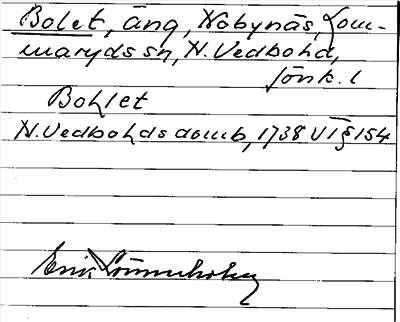 Bolet, äng, Nobynäs, Lom-
maryds sn, N. Vedbohd,
Jönk. l
Bohlet
N. Vedbohds domb, 1738 VI § 154
Erik